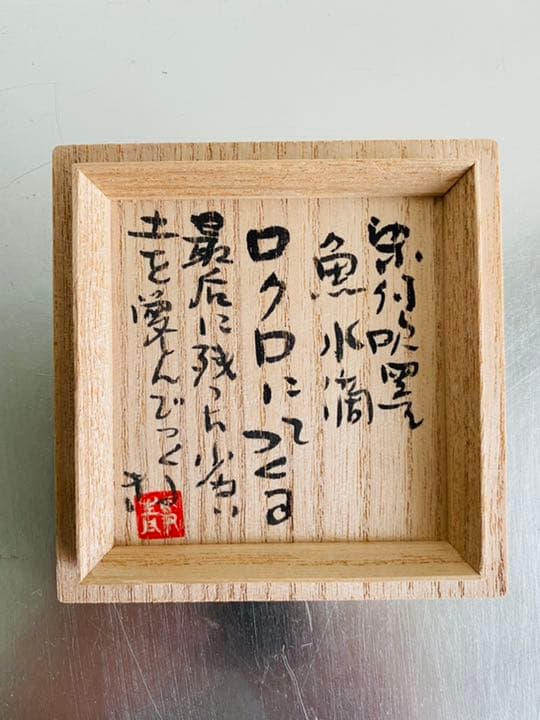 染付吹墨
魚水滴
ロクロにてつくる
最后に残った少ない
土を とんでつくる